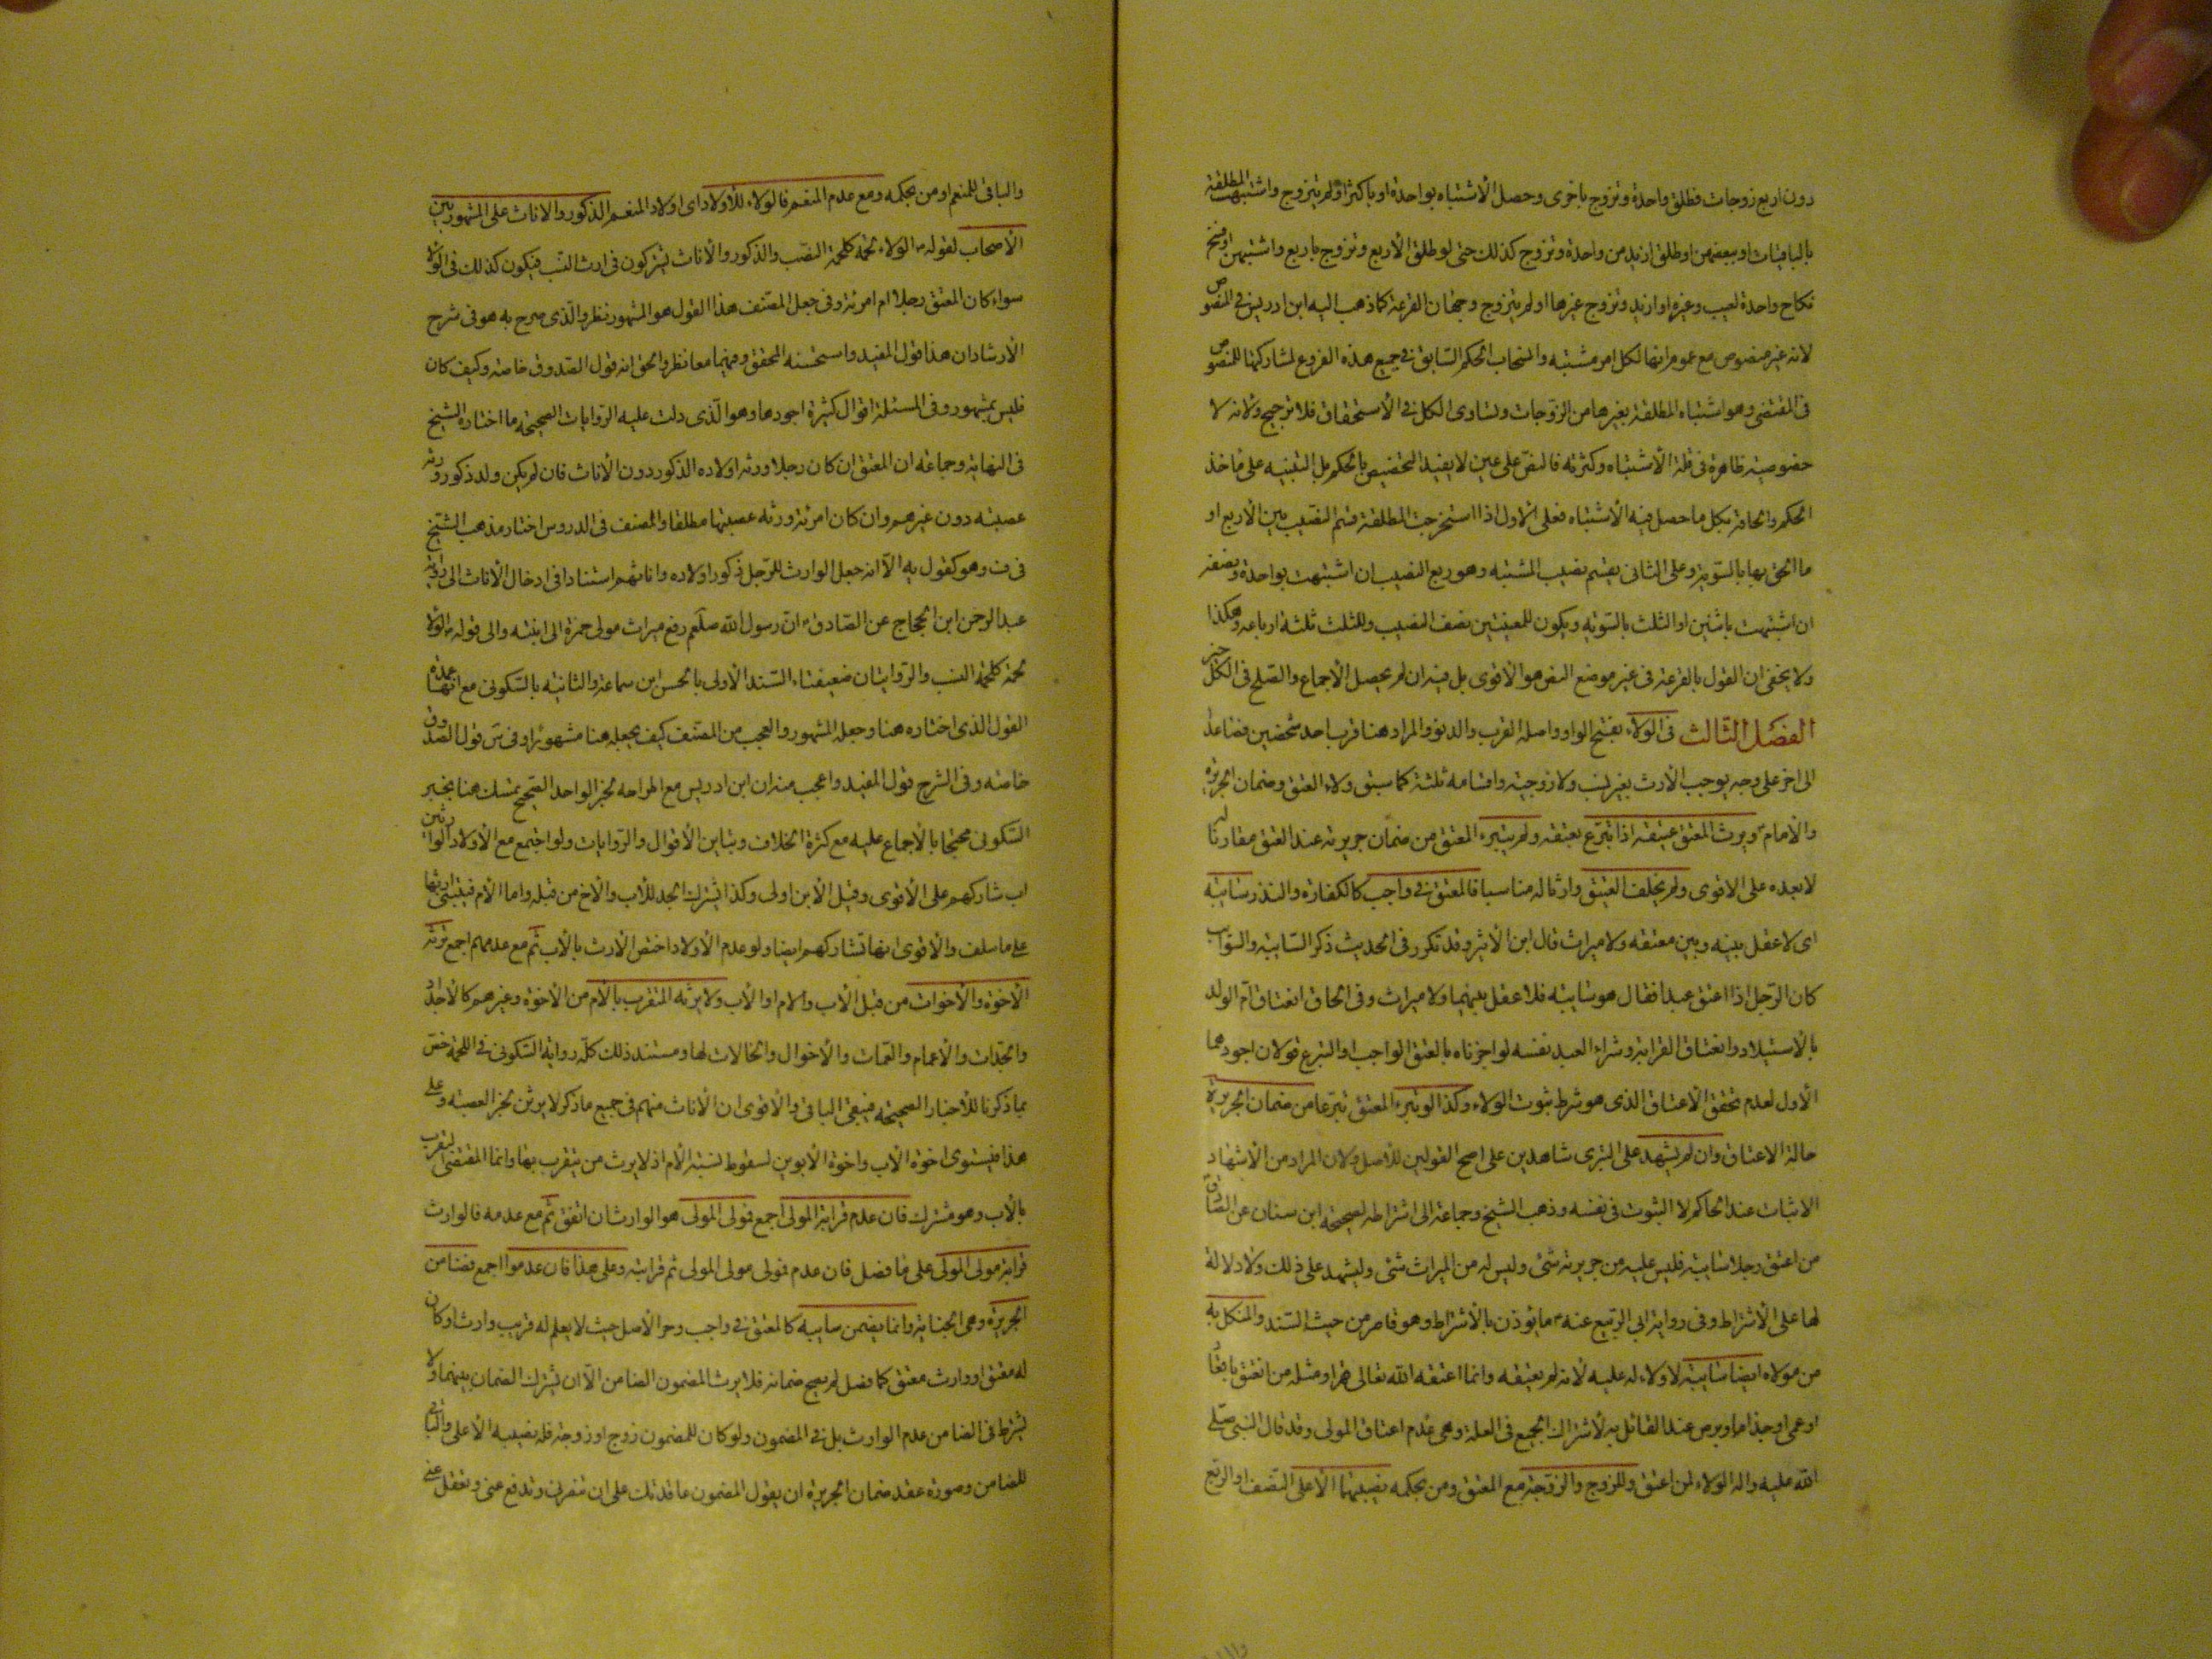 دون اربع زوجات فطلق واحدة وتزوج باخرى وحصل الأشتباه بواحدة او باكثر او لم يتزوج واشتبهت المطلقة
بالباقيات او ببعضهن او طلق ازيد من واحدة وتزوج كذلك حتى لو طلق الأربع وتزوج باربع واشتبهن او فسخ
نكاح واحدة لعيب وغيره او ازيد وتزوج غيرها او لم يتزوج وجهان القرعة كما ذهب اليه ابن ادريس في المنصوص
لانه غير منصوص مع عموم انها لكل امر مشتبه وانسحاب الحكم السابق في جميع هذه الفروع لمشاركتها للمنصوص
في المقتضى وهو اشتباه المطلقة بغيرها من الزوجات وتساوى الكل في الأستحقاق فلا ترجيح ولانه لا
خصوصية ظاهرة في قلة الأشتباه وكثرته فالنص على عين لا يفيد التخصيص بالحكم بل التنبيه على ماخذ
الحكم والحاقه بكل ما حصل فيه الأشتباه فعلى الأول اذا استخرجت المطلقة قسم النصيب بين الأربع او
ما الحق بها بالسوية وعلى الثانى يقسم نصيب المشتبه وهو ربع النصيب ان اشتبهت بواحدة ونصفه
ان اشتبهت باثنين او الثلث بالسويه ويكون للمعينتين نصف النصيب وللثلث ثلثة ارباعه وهكذا
ولا يخفى ان القول بالقرعة في غير موضع النص هو الأقوى بل فيه ان لم يحصل الأجماع والصلح في الكل خير
الفصل الثالث في الولاء بفتح الواو واصله القرب والدنو والمراد هنا قرب احد شخصين فصاعدا
الى اخر على وجه يوجب الأرث بغير نسب ولا زوجيته واقسامه ثلثة كما سبق ولاء العتق وضمان الجريرة
والامام ويرث المعتق عتيقه اذا تبرع بعتقه ولم يتبرء المعتق من ضمان جريرته عند العتق مقارنا له
لا بعده على الاقوى ولم يخلف العتيق وارثا له مناسبا فالمعتق في واجب كالكفارة والنذر سائبة
اى لا عقل بينه وبين معتقه ولا ميراث قال ابن الأثير وقد تكرر في الحديث ذكر السائبة والسوائب
كان الرجل اذا اعتق عبدا فقال هو سايبه فلا عقل بينهما ولا ميراث وفى الحاق انعتاق ام الولد
بالأستيلاد وانعتاق القرابة وشراء العبد نفسه لو اجزناه بالعتق الواجب او التبرع قولان اجودهما
الأول لعدم تحقق الأعتاق الذى هو شرط ثبوت الولاء وكذا لو تبرء المعتق تبرعا من ضمان الجريرة
حالة الاعتاق وان لم يشهد على التبرى شاهدين على اصح القولين للأصل ولان المراد من الأشهاد
الاثبات عند الحاكم لا الثبوت في نفسه وذهب الشيخ وجماعة الى اشتراطه لصحيحة ابن سنان عن الصادق
من اعتق رجلا سايبة فليس عليه من جريرته شئ وليس له من الميراث شئ وليشهد على ذلك ولا دلالة
لها على الأشتراط وفى رواية ابى الربيع عنه ما يؤذن بالأشتراط وهو قاصر من حيث السند والمنكل به
من مولاه ايضا سايبة لا ولاء له عليه لأنه لم يعتقه وانما اعتقه الله تعالى قهرا ومثله من انعتق باقعاد
او عمى او جذام او برص عند القائل به لأشتراك الجميع في العلة وهى عدم اعتاق المولى وقد قال النبى صلى
الله عليه واله الولاء لمن اعتق وللزوج والزوجة مع المعتق ومن بحكمه نصيبهما الأعلى النصف او الربع
والباقى للمنعم او من بحكمه ومع عدم المنعم فالولاء للأولاد اى اولاد المنعم الذكور والاناث على المشهور بين
الأصحاب لقوله الولاء لحمة كلحمة النسب والذكور والأناث يشتركون في ارث النسب فيكون كذلك في الولاء
سواء كان المعتق رجلا ام امرئة وفى جعل المصنف هذا القول هو المشهور نظر والذى صرح به هو في شرح
الأرشاد ان هذا قول المفيد واستحسنه المحقق وفيهما معا نظر والحق انه قول الصدوق خاصة وكيف كان
فليس بمشهور وفى المسئلة اقوال كثيرة اجودها وهو الذى دلت عليه الروايات الصحيحة ما اختاره الشيخ
في النهاية وجماعة ان المعتق ان كان رجلا ورثه اولاده الذكور دون الأناث فان لم يكن ولد ذكور ورثه
عصبته دون غيرهم وان كان امرئة ورثه عصبتها مطلقا والمصنف في الدروس اختار مذهب الشيخ
في ف وهو كقول يه الا انه جعل الوارث للرجل ذكور اولاده واناثهم استنادا في ادخال الأناث الى رواية
عبد الرحمن ابن الحجاج عن الصادق ان رسول الله صلعم دفع ميراث مولى حمزة الى ابنته والى قوله الولاء
لحمة كلحمة النسب والروايتان ضعيفتا السند الأولى بالحسن ابن سماعة والثانية بالسكونى مع انها عمدة
القول الذى اختاره هنا وجعله المشهور والعجب من المصنف كيف يجعله هنا مشهورا وفى س قول الصدوق
خاصة وفى الشرح قول المفيد واعجب منه ان ابن ادريس مع اطراحه لخبر الواحد الصحيح تمسك هنا بخبر
السكونى محتجا بالأجماع عليه مع كثرة الخلاف وتباين الأقوال والروايات ولو اجتمع مع الأولاد الوارثين
اب شاركهم على الأقوى وقيل الأبن اولى وكذا يشترك الجد للأب والأخ من قبله واما الأم فيبنى ارثها
على ما سلف والأقوى انها تشاركهم ايضا ولو عدم الأولاد اختص الأرث بالأب ثم مع عدمهم اجمع ترثه
الأخوة والأخوات من قبل الأب والام او الأب ولا يرثه المتقرب بالأم من الأخوة وغيرهم كالأجداد
والجدات والأعمام والعمات والأخوال والخالات لها ومستند ذلك كله رواية السكونى في اللحمة خص
بما ذكرنا للأخبار الصحيحة فيبقى الباقى والأقوى ان الأناث منهم في جميع ما ذكر لا يرثن لخبر العصبة وعلى
هذا فيستوى اخوة الأب واخوة الأبوين لسقوط نسبة الأم اذ لا يرث من يتقرب بها وانما المقتضى التقرب
بالأب وهو مشترك فان عدم قرابة المولى اجمع فمولى المولى هو الوارث ان اتفق ثم مع عدمه فالوارث
قرابة مولى المولى على ما فصل فان عدم فمولى مولى المولى ثم قرابته وعلى هذا فان عدموا اجمع فضامن
الجريرة وهى الجناية وانما يضمن سايبة كالمعتق في واجب وحر الأصل حيث لا يعلم له قريب وارث او كان
له معتق او وارث معتق كما فصل لم يصح ضمانه فلا يرث المضمون الضامن الا ان يشترك الضمان بينهما ولا
يشترط في الضامن عدم الوارث بل في المضمون ولو كان للمضمون زوج او زوجة فله نصيبه الأعلى والباقى
للضامن وصورة عقد ضمان الجريرة ان يقول المضمون عاقدتك على ان تنصرنى وتدفع عنى وتعقل عنى